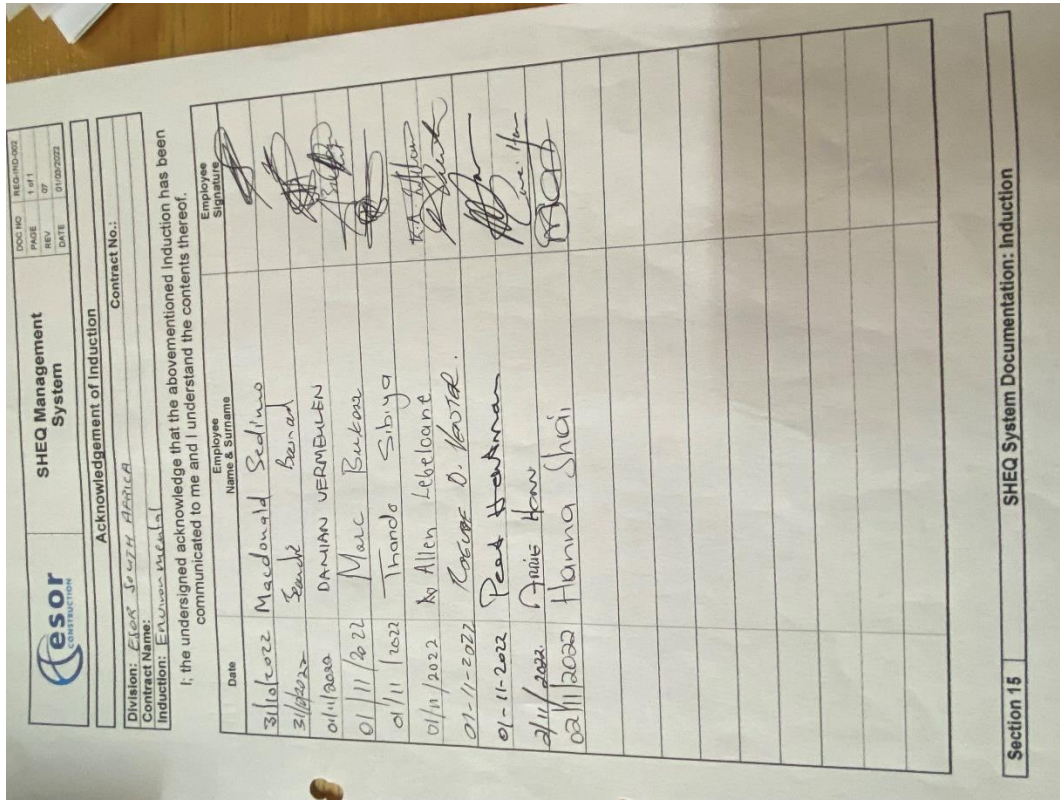 esor
CONSTRUCTION
SHEQ Management
System
DOC NO REG-IND-002
PAGE 1 of 1
REV 07
DATE 01/03/2022
Acknowledgement of Induction
Division: ESOR SOUTH AFRICA
Contract Name: Contract No.:
Induction: Environmental
I; the undersigned acknowledge that the abovementioned Induction has been
communicated to me and I understand the contents thereof.
Date Employee Name & Surname Employee Signature
31/10/2022 Macdonald Sedimo
31/10/2022
01/11/2022 DAMIAN VERMEULEN
01/11/2022 Marc
01/11/2022 Thando Sibiya
01/11/2022 Allen Lebeloane
01-11-2022 D. VENTER.
01-11-2022
2/11/2022 ARRIE
02/11/2022 Hanna Shai
Section 15 SHEQ System Documentation: Induction